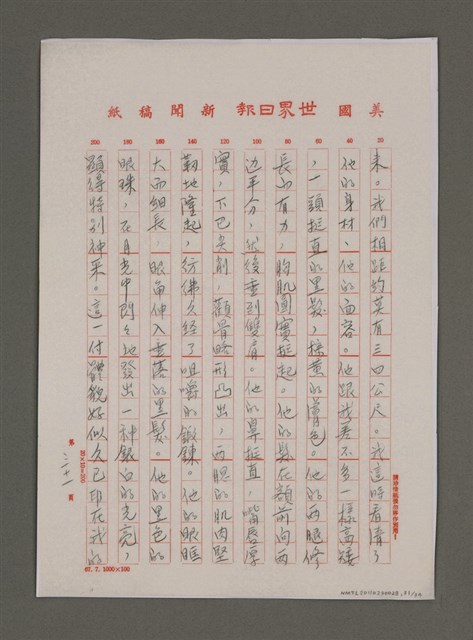 美國世界日報新聞稿紙
20
40
60
80
100
120
140
160
180
200
來。我們相距約莫有三四公尺。我這時看清了
他的身材、他的面容。他跟我差不多一樣高矮
，一頭挺直的黑髮，棕黃的膚色。他的兩腿修
長而有力，胸肌圓實挺起。他的黑髮在額前向兩
边平分，然後垂到雙肩。他的鼻挺直，嘴唇厚
實，下巴尖削，顴骨略形凸出，兩腮的肌肉堅
勒地隆起，彷彿久經了咀嚼的鍛鍊。他的眼眶
大而細長，眼角伸入垂落的黑髮。他的黑色的
眼珠，在月光中閃々地發出一神銀白的光亮，
顯得特別神采。這一付體貌好似久已印在我的
第二十一頁
20×10=200
67.7.1000×100